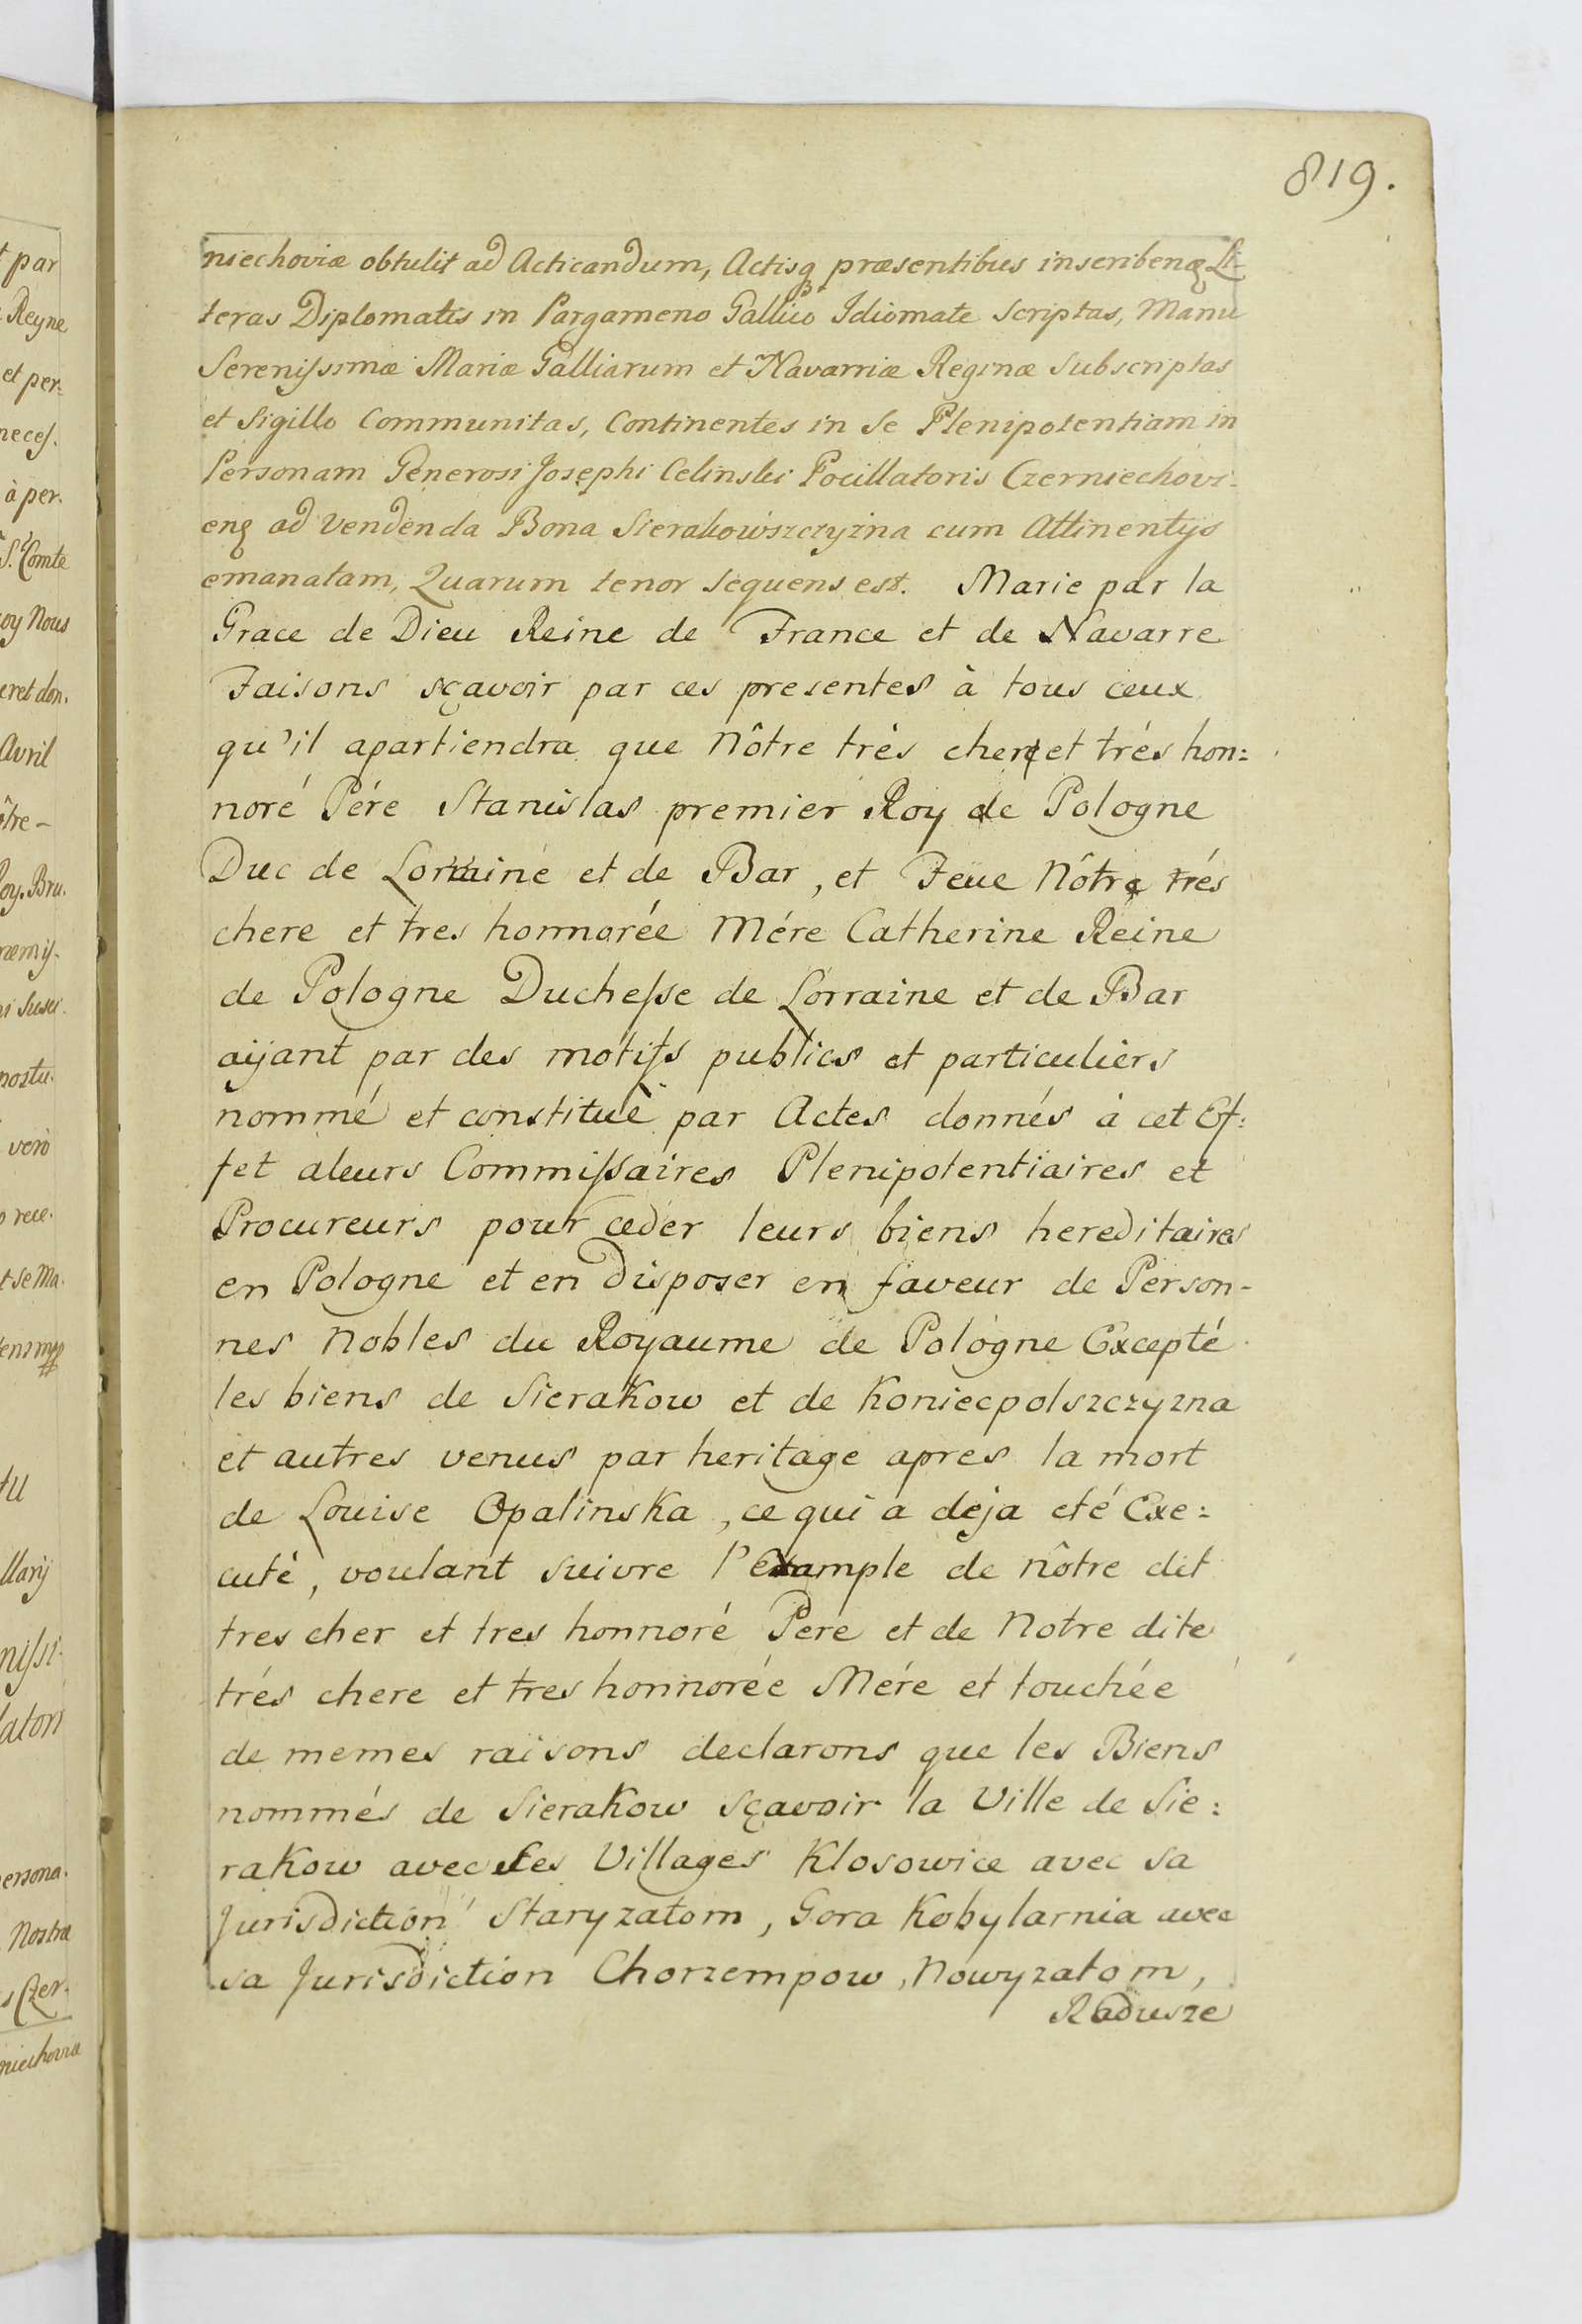 819.
niechoviæ obtulit ad Acticandum, Actisq præsentibus inscribenq Li-
teras Diplomatis in Pargameno Gallico Idiomate Scriptas, Manu
Serenissimæ Mariæ Galliarum et Navarriæ Reginæ Subscriptas
et Sigillo Communitas, Continentes in Se Plenipotentiam in
Personam Generosi Josephi Celinski Pocillatoris Czerniechovi-
enq ad vendenda Bona Sierakowszczyzna cum Attinentÿs
emanatam, Quarum tenor sequens est. Marie par la
Grace de Dieu Reine de France et de Navarre
Faisons sçavoir par ces presentes à tous ceux
qu'il apartiendra que Nôtre trés cher et trés hon:
noré Pére Stanislas premier Roy de Pologne
Duc de Lorraine et de Bar, et Feue Nôtre trés
chere et tres honnorée Mére Catherine Reine
de Pologne Duchesse de Lorraine et de Bar
aÿant par des motifs publics et particuliers
nommé et constitué par Actes donnés à cet Ef:
fet aleurs Commissaires Plenipotentiaires et
Procureurs pour ceder leurs biens hereditaires
en Pologne et en Disposer en faveur de Person-
nes Nobles du Royaume de Pologne Excepté
les biens de Sierakow et de Koniecpolszczyzna
et autres venus par heritage apres la mort
de Louise Opalinska, ce qui a deja eté Exe:
cuté, voulant suivre l'example de nôtre dit
tres cher et tres honnoré Pere et de Notre dite
trés chere et tres honnorée Mére et touchée
de memes raisons declarons que les Biens
nommés de Sierakow sçavoir la Ville de Sie:
rakow avec Les Villages Klosowice avec sa
Jurisdiction Staryzatom, Gora Kobylarnia avec
sa Jurisdiction Chorzempow, Nowyzatom,
Radusze